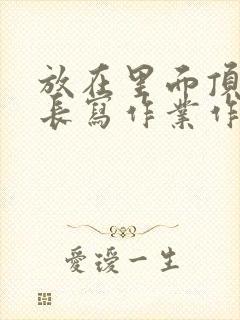 放在里而頂
長寫作業作
愛瑷一生